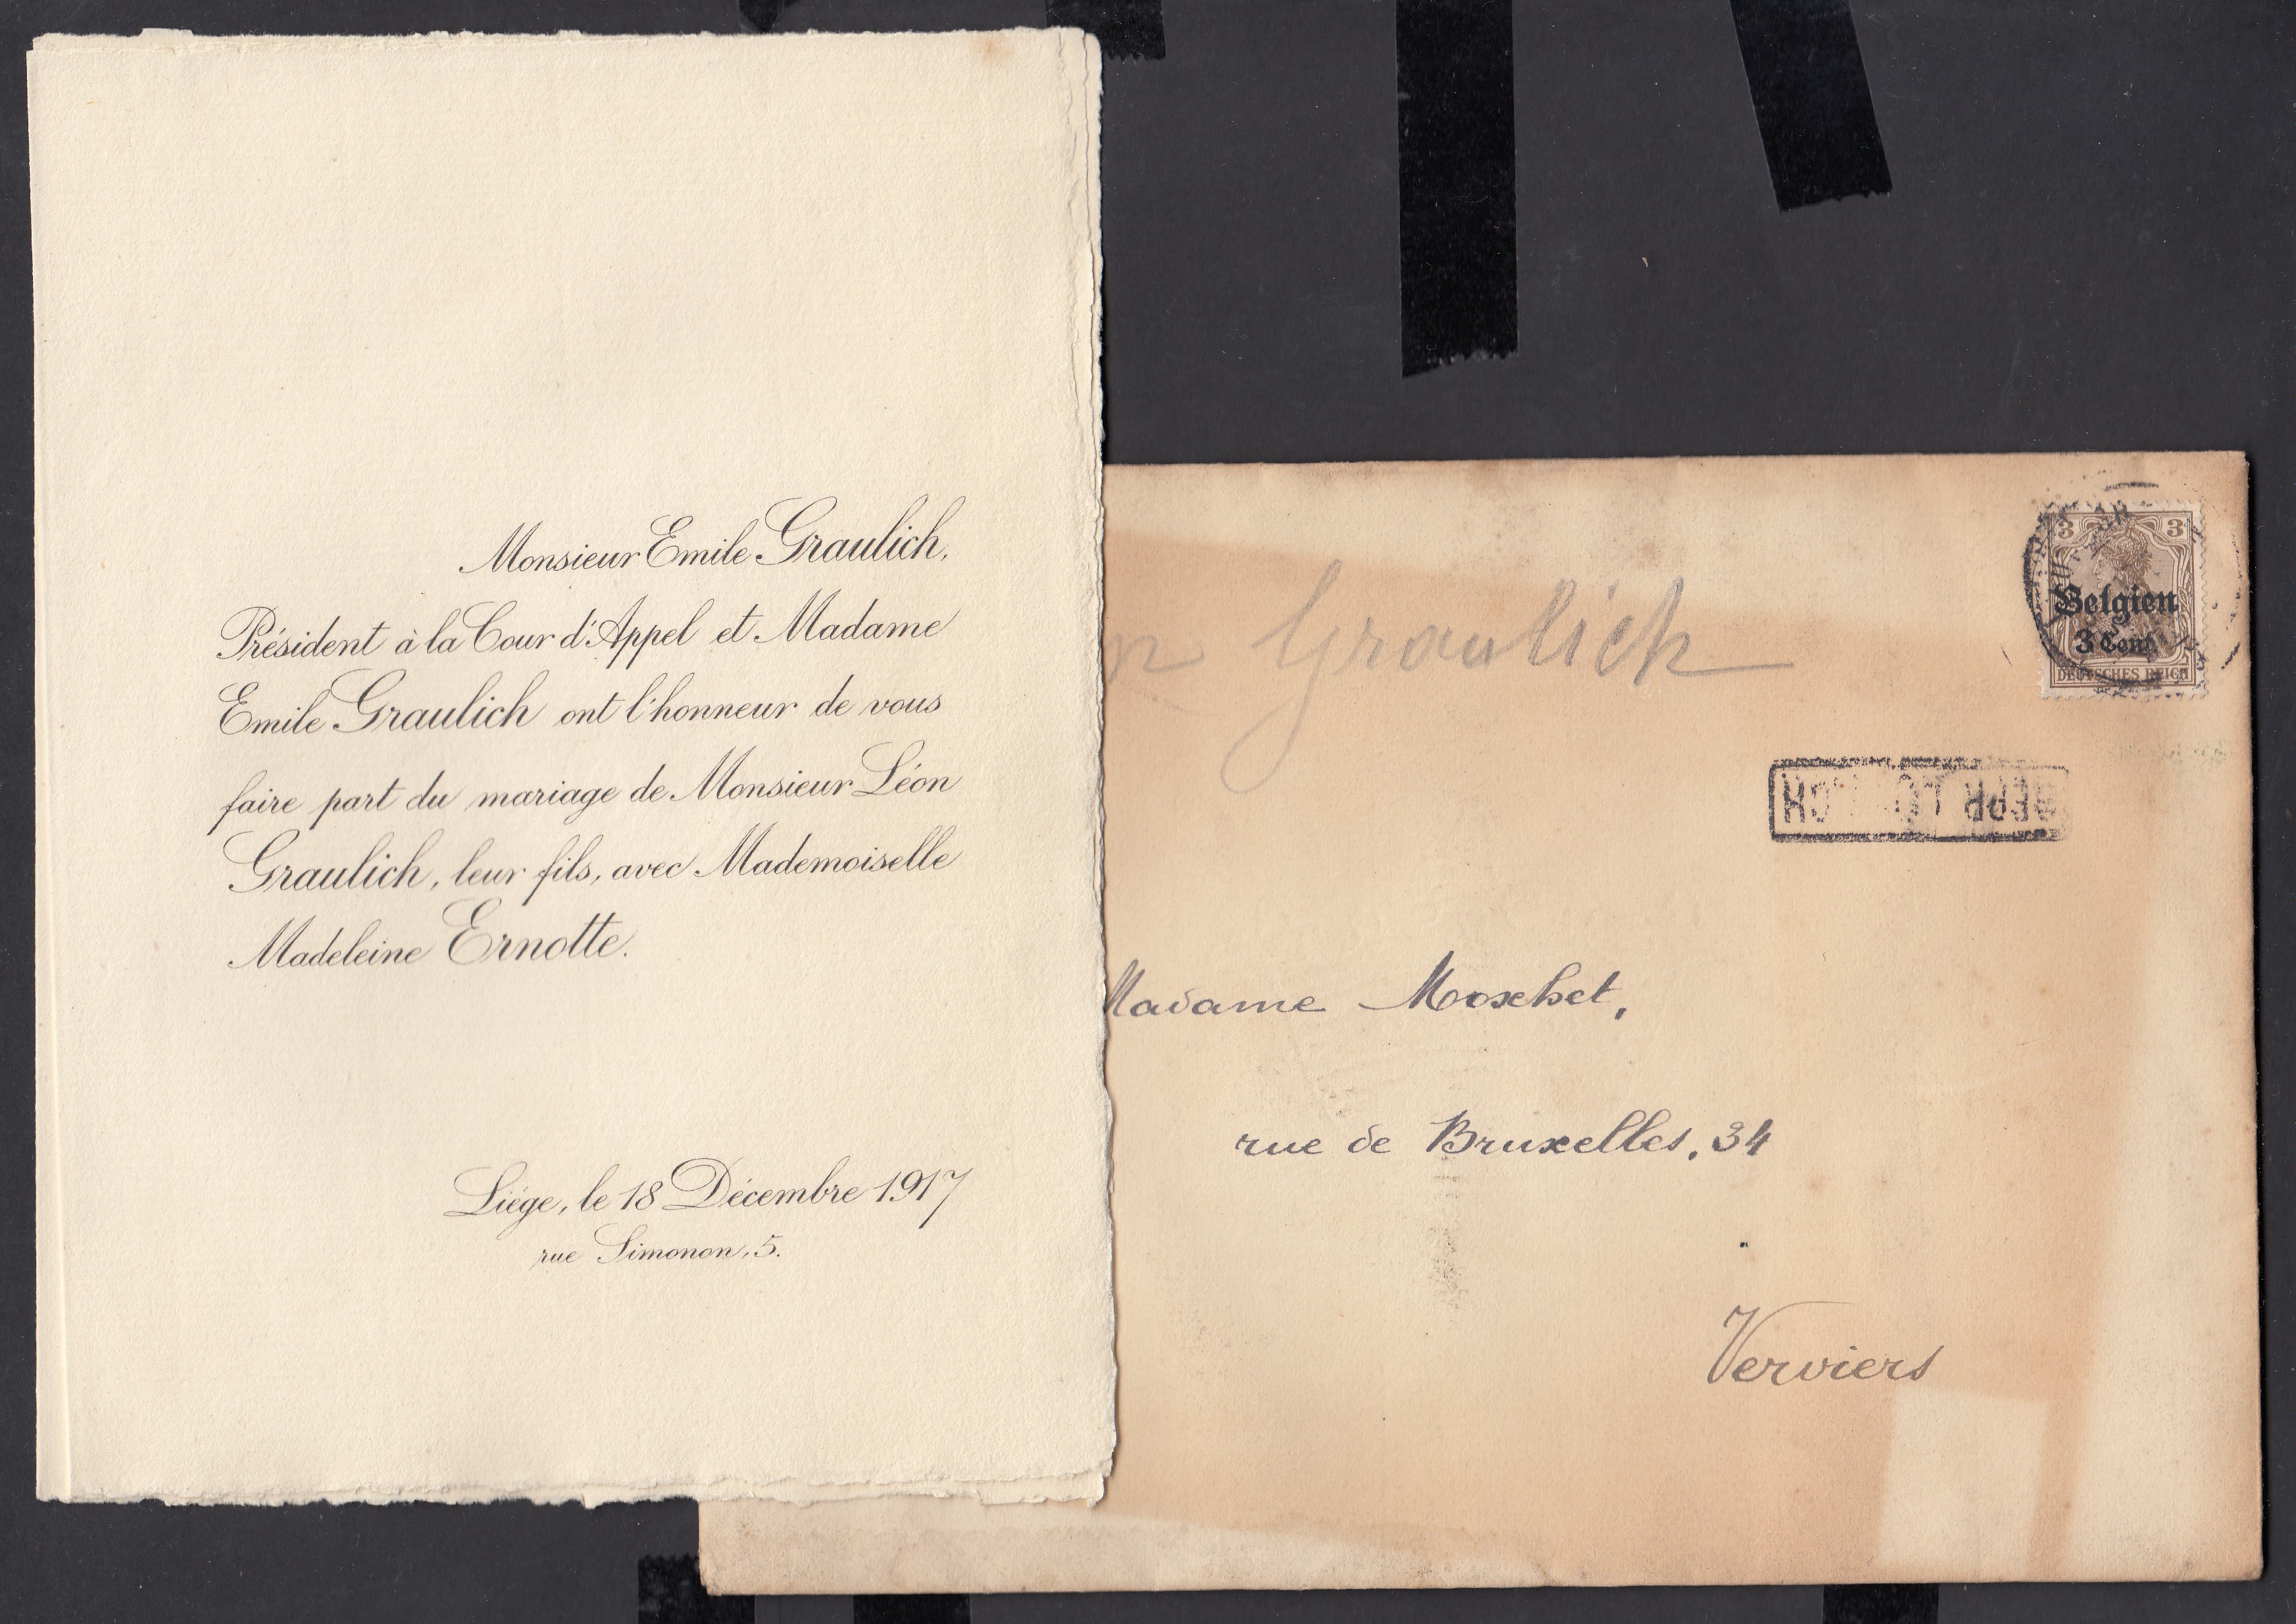 Monsieur Emile Graulich,
Président à la Cour d'Appel et Madame
Emile Graulich ont l'honneur de vous
faire part du mariage de Monsieur Léon
Graulich, leur fils, avec Mademoiselle
Madeleine Ernotte.
Liége, le 18 Décembre 1917
rue Simonon, 5.
Graulich
3 3
Belgien
3 Cent.
DEUTSCHES REICH
Madame
rue de Bruxelles, 34
Verviers